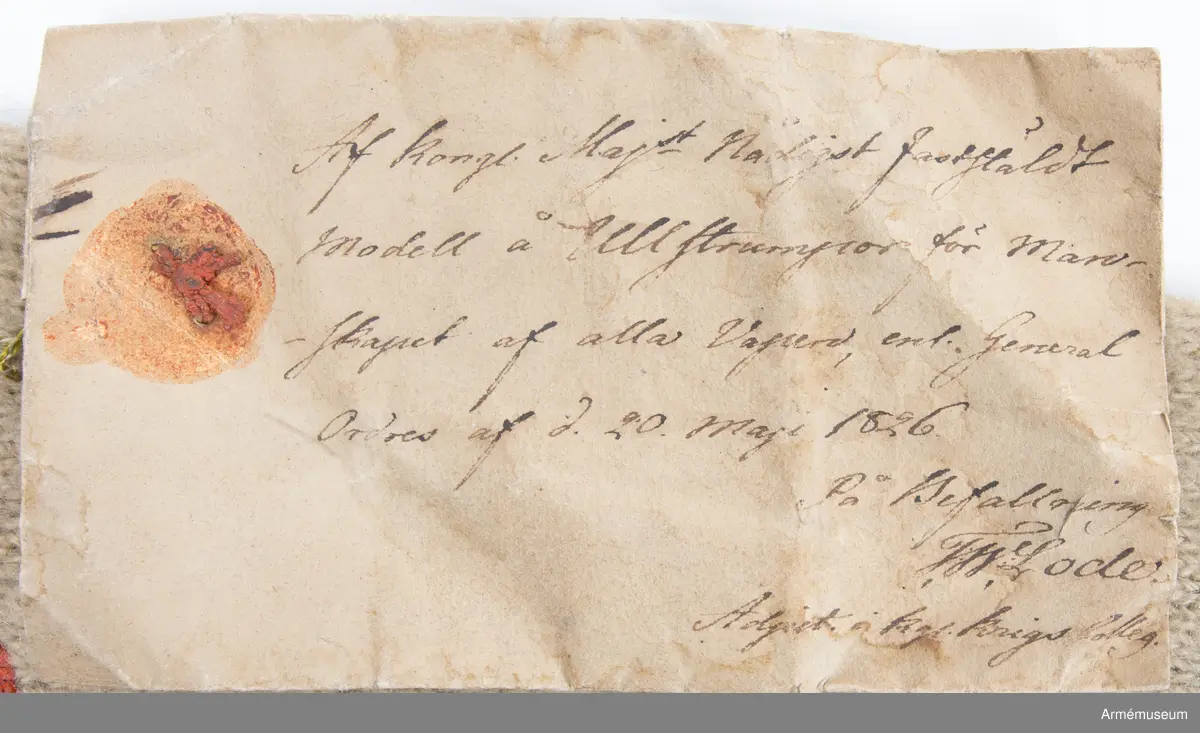 Af Kongl. Majst Nådigst fastställdt
Modell å Ullstrumpor för Man-
-skapet af alla Vapen, enl. General
Ordres af d. 20. Maji 1826.
På Befallning
Lode.
Adjut. i Kgl. Krigs Colleg.
Armémuseum